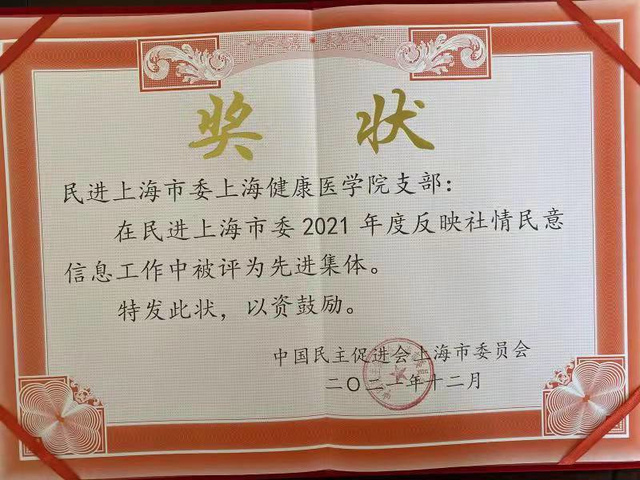 奖 状
民进上海市委上海健康医学院支部：
在民进上海市委2021年度反映社情民意
信息工作中被评为先进集体。
特发此状，以资鼓励。
中国民主促进会上海市委员会
二〇二一年十二月